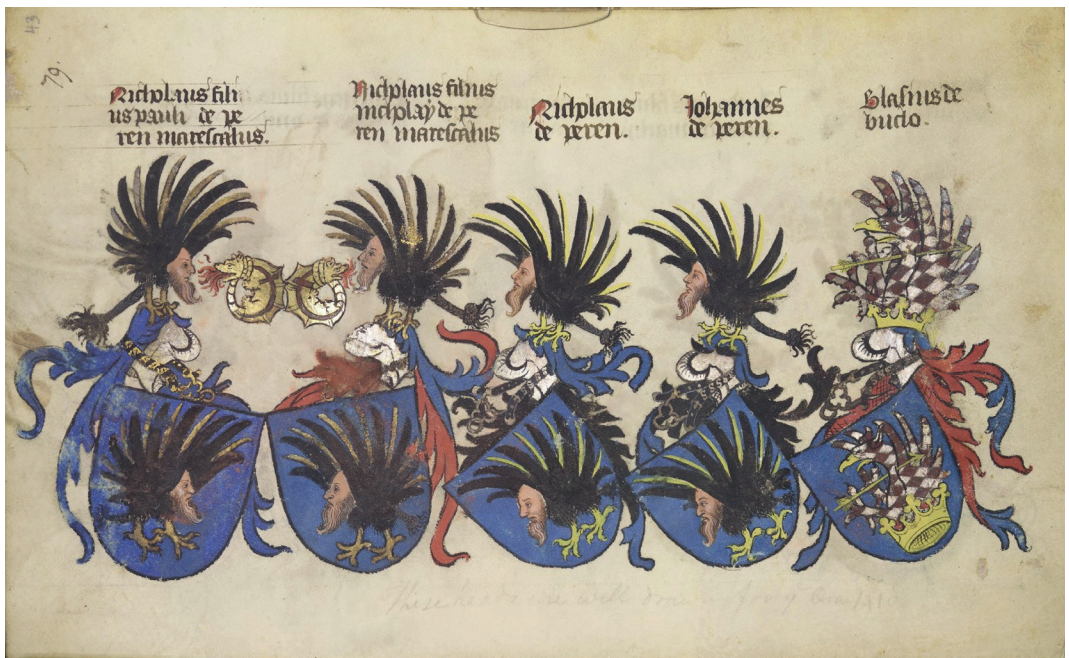 43
79.
Nicholaus fili
us pauli de pe
ren marescalus.
Nicholaus filius
nicholay de pe
ren marescalus
Nicholaus
de peren.
Johannes
de peren.
Blasius de
budo.
These heads are well drawn for yᵉ